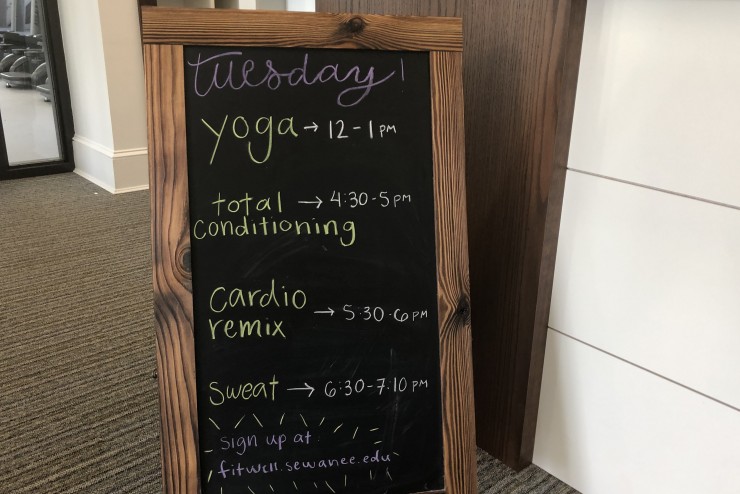 tuesday!
yoga → 12-1 PM
total → 4:30-5 PM
conditioning
cardio
remix → 5:30-6 PM
sweat → 6:30-7:10 PM
sign up at:
fitwell.sewanee.edu